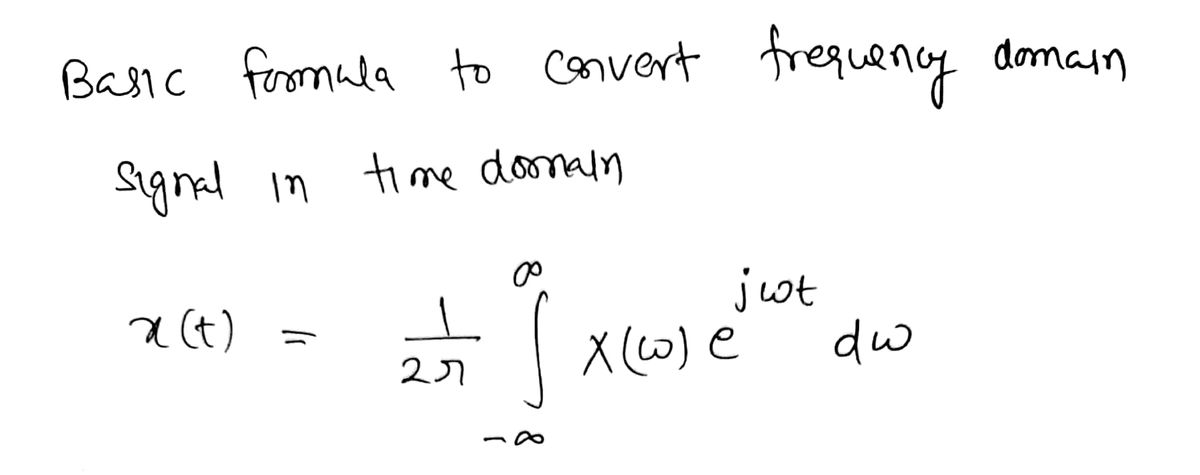 Basic formula to convert frequency domain
signal in time domain
x(t) = 1/2π ∫_{-∞}^{∞} X(ω) e^{jωt} dω